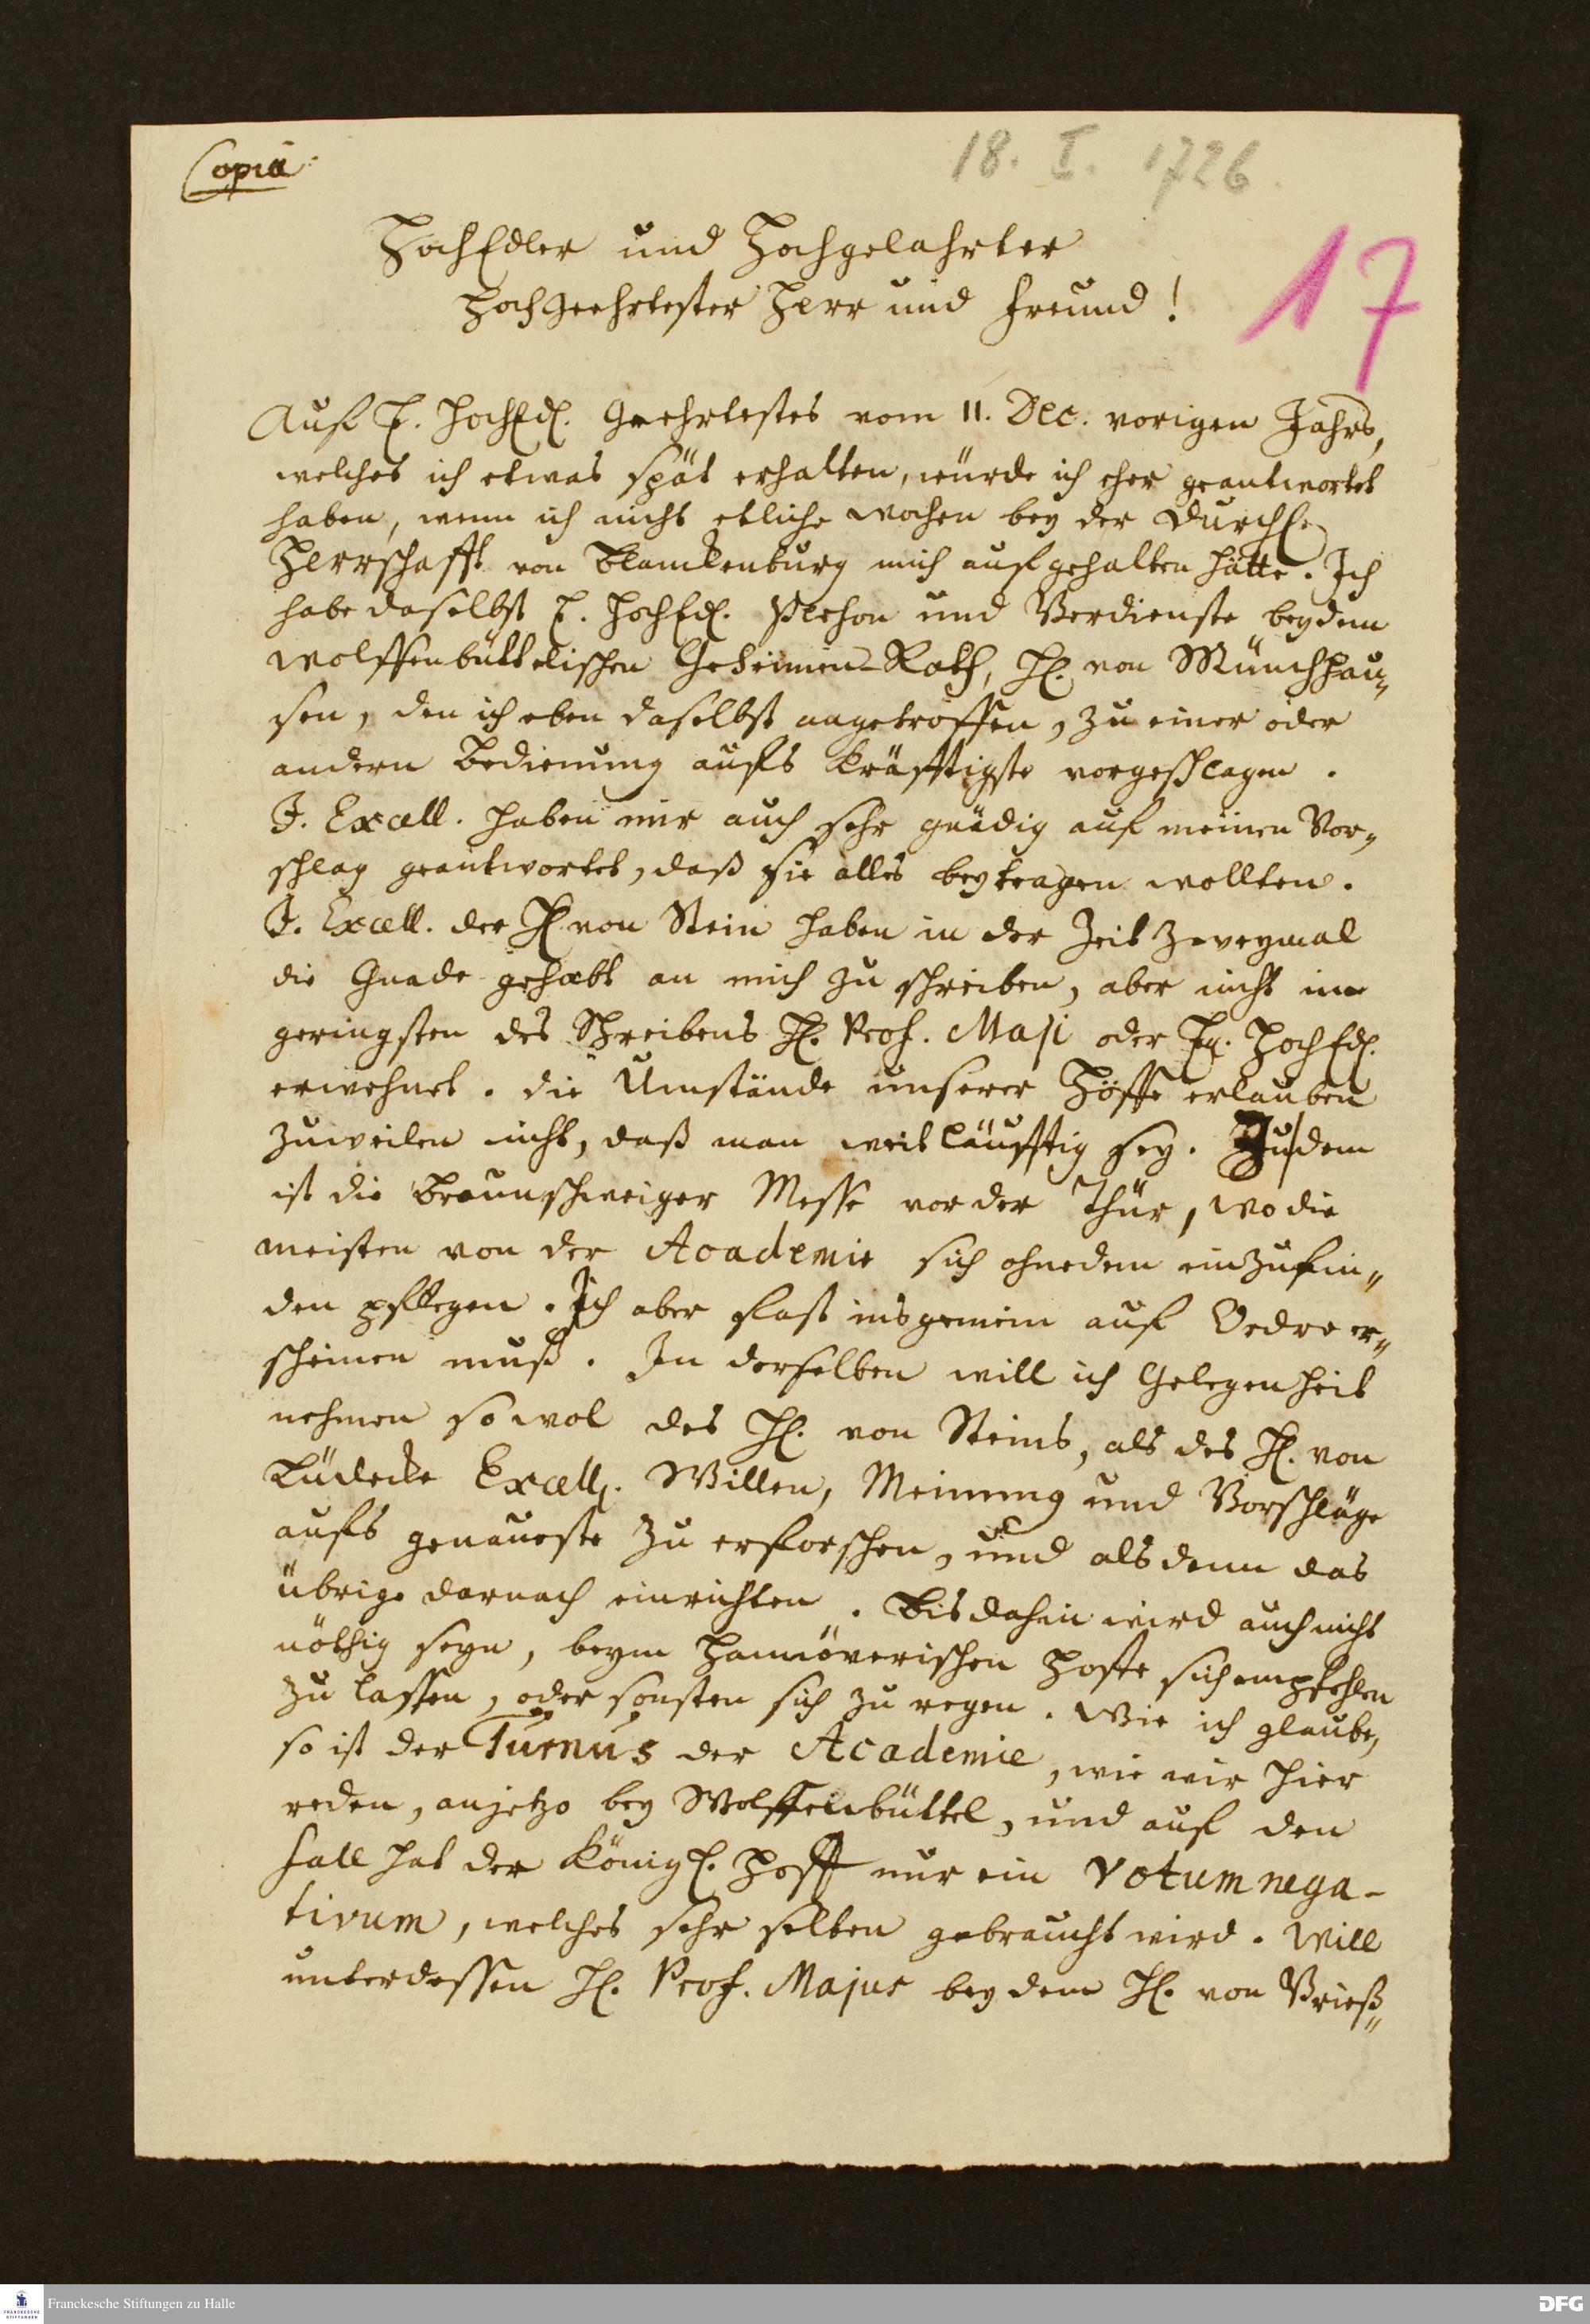 Copia.
18. I. 1726.
17
HochEdler und Hochgelahrter
HochGeehrtester Herr und Freund!
Auf E. HochEdl. Geehrtestes vom 11. Dec. vorigen Jahrs,
welches ich etwas spät erhalten, würde ich eher geantwortet
haben, wenn ich nicht etliche Wochen bey der Durchl.
Herrschafft von Blanckenburg mich aufgehalten hätte. Ich
habe daselbst E. HochEdl. Persohn und Verdienste bey dem
Wolffenbüttelischen Geheimen-Rath, H. von Münchhau„
sen, den ich eben daselbst angetroffen, zu einer oder
andern Bedienung aufs kräfftigste vorgeschlagen.
J. Excell. haben mir auch sehr gnädig auf meinen Vor„
schlag geantwortet, daß sie alles beytragen wollten.
J. Excell. der H. von Stein haben in der Zeit zweymal
die Gnade gehabt an mich zu schreiben, aber nicht im
geringsten des Schreibens H. Prof. Maji oder Ew. HochEdl.
erwehnet. Die Umstände unserer Höffe erlauben
zuweilen nicht, daß man weitläufftig sey. Zudem
ist die Braunschweiger Messe vor der Thür, wo die
meisten von der Academie sich ohnedem einzufin„
den pflegen. Ich aber fast insgemein auf Ordre er„
scheinen muß. In derselben will ich Gelegenheit
nehmen so wol des H. von Steins, als des H. von
Lüdecke Excell. Willen, Meinung und Vorschläge
aufs genaueste zu erforschen, und alsdenn das
übrige darnach einrichten. Bis dahin wird auch nicht
nöthig seyn, beym Hannöverischen Hofe sich empfehlen
zu lassen, oder sonsten sich zu regen. Wie ich glaube,
so ist der Turnus der Academie, wie wir hier
reden, anjetzo bey Wolffenbüttel, und auf den
Fall hat der Königl. Hoff nur ein Votum nega-
tivum, welches sehr selten gebraucht wird. Will
unterdessen H. Prof. Majus bey dem H. von Vrieß„
Franckesche Stiftungen zu Halle
DFG